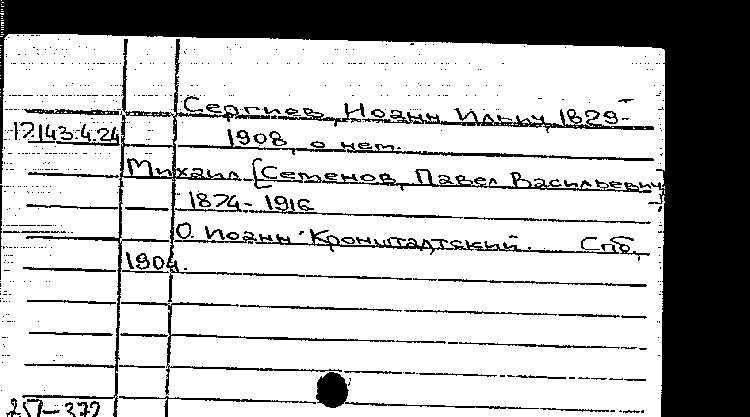 Сергиев, Иоанн Ильич, 1829-
17.143.4.24
1908, о нем.
Михаил [Семенов, Павел Васильевич]
1874-1916
О. Иоанн Кронштадтский. Спб,
1904.
257-372